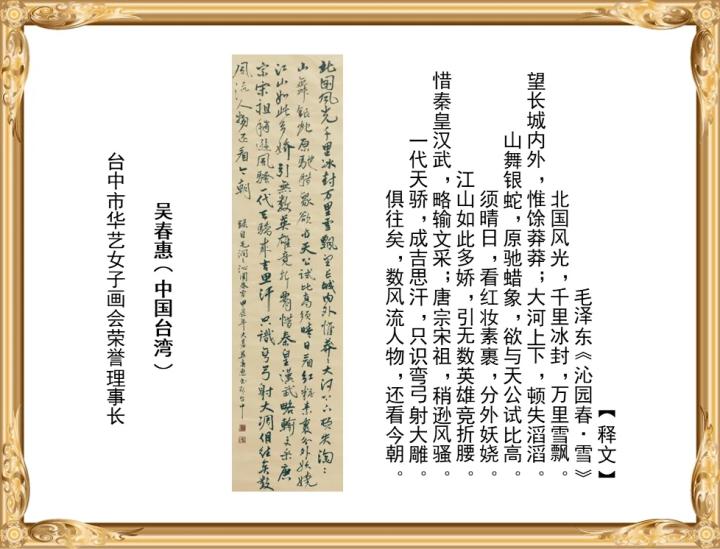 【释文】
毛泽东《沁园春·雪》
北国风光，千里冰封，万里雪飘。
望长城内外，惟馀莽莽；大河上下，顿失滔滔。
山舞银蛇，原驰蜡象，欲与天公试比高。
须晴日，看红妆素裹，分外妖娆。
江山如此多娇，引无数英雄竞折腰。
惜秦皇汉武，略输文采；唐宗宋祖，稍逊风骚。
一代天骄，成吉思汗，只识弯弓射大雕。
俱往矣，数风流人物，还看今朝。
北国風光千里冰封万里雪飄望長城内外惟莽〻大河上下顿失滔〻
山舞銀蛇原馳臘象欲与天公试比高須晴日看红粧素裹分外妖娆
江山如此多娇引無數英雄竞折腰惜秦皇漢武略輸文采唐
宗宋祖稍遜風騷一代天驕成吉思汗只識彎弓射大雕俱往矣數
風流人物还看今朝
錄自毛润之沁園春雪甲辰年大暑吴春惠書於台中
吴春惠（中国台湾）
台中市华艺女子画会荣誉理事长